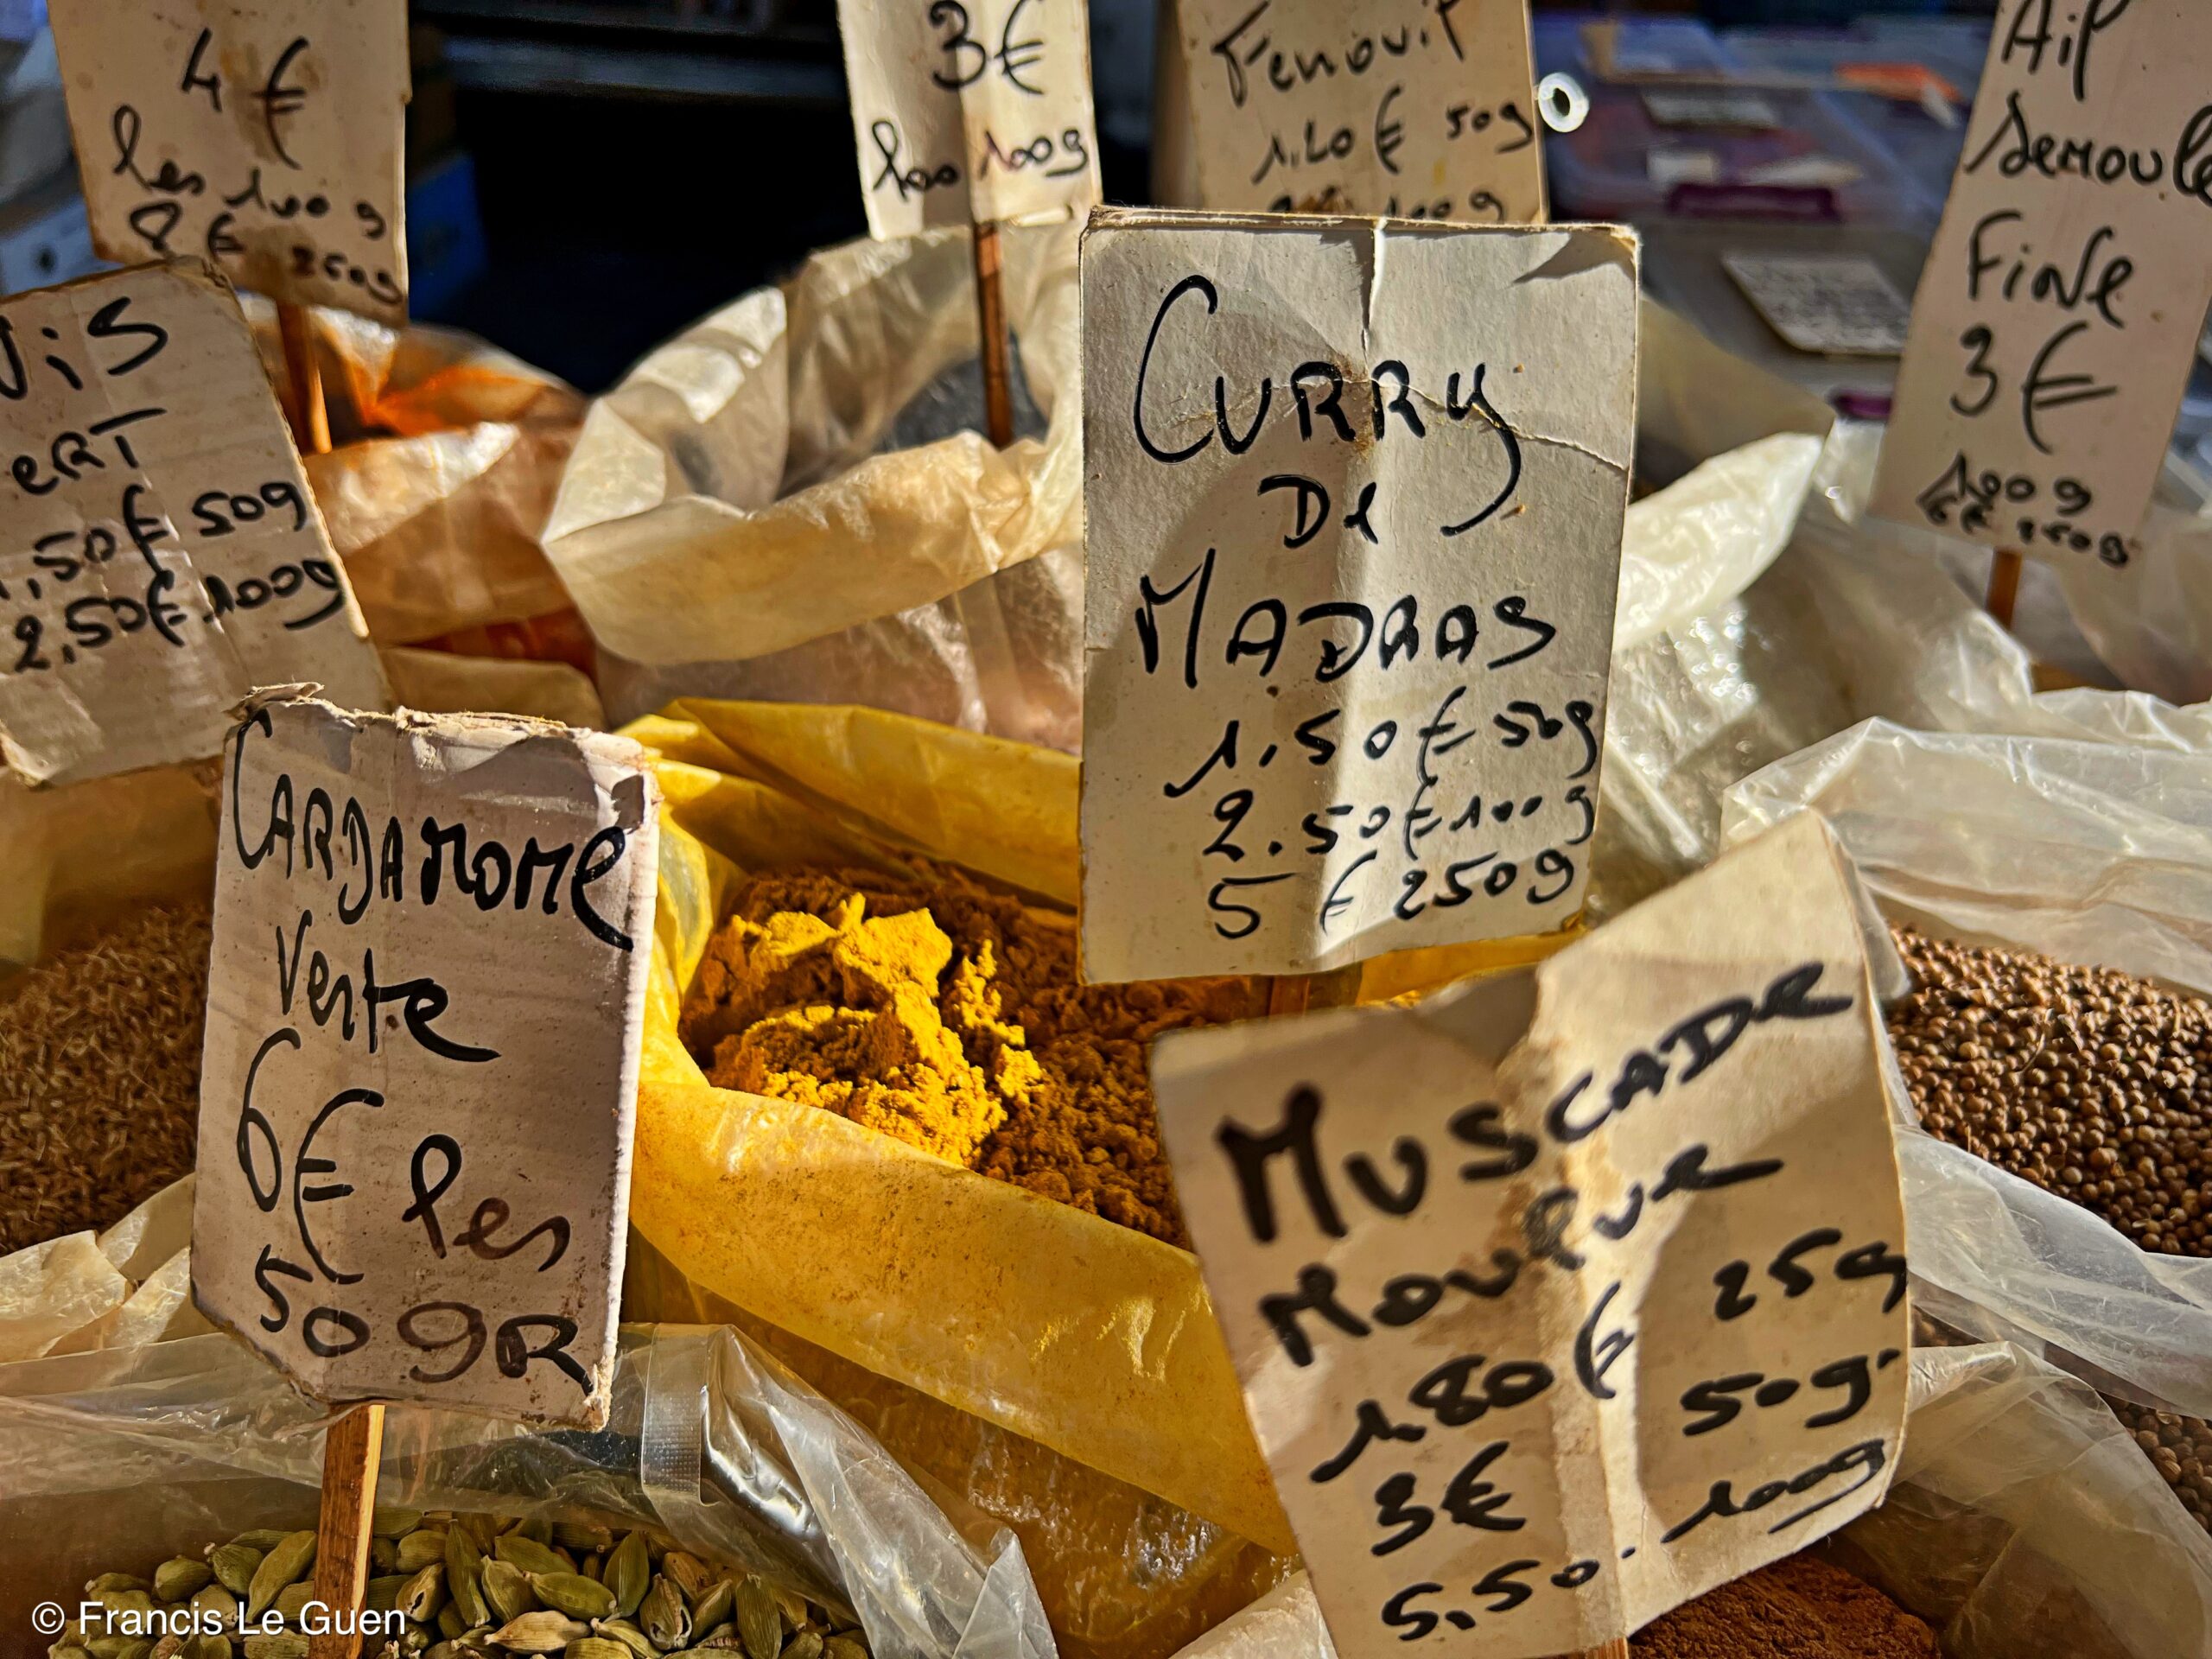 4 €
les 100 g
8 € 250g
3€
les 100g
Fenouil
1.20 € 50g
100g
Ail
Semoule
Fine
3 €
100g
6€ 250g
50g
2,50€ 100g
Curry
De
Madras
1.50 € 50g
2.50 € 100g
5 € 250g
Cardamome
Verte
6€ les
50 gR
Muscade
Moulue
1.80 € 25g
3€ 50g
5,50 100g
© Francis Le Guen